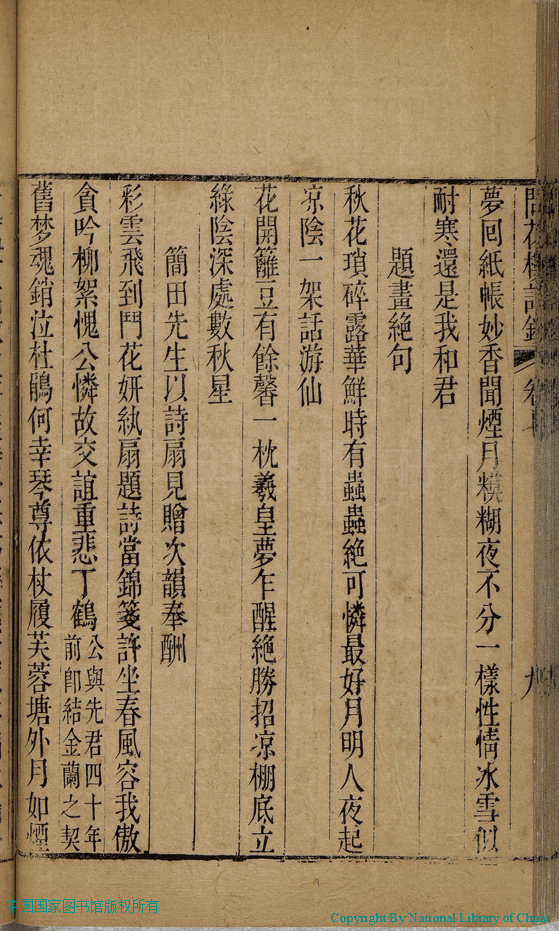 夢回紙帳妙香聞煙月糢糊夜不分一樣性情冰雪似
耐寒還是我和君
題畫絕句
秋花瑣碎露華鮮時有蟲蟲絕可憐最好月明人夜起
凉陰一架話游仙
花開籬豆有餘馨一枕羲皇夢乍醒絕勝招凉棚底立
綠陰深處數秋星
簡田先生以詩扇見贈次韻奉酬
彩雲飛到鬥花妍紈扇題詩當錦箋許坐春風容我傲
貪吟柳絮愧公憐故交誼重悲丁鶴公與先君四十年前卽結金蘭之契
舊梦魂銷泣杜鵑何幸琴尊依杖履芙蓉塘外月如煙
中国国家图书馆版权所有
Copyright By National Library of China